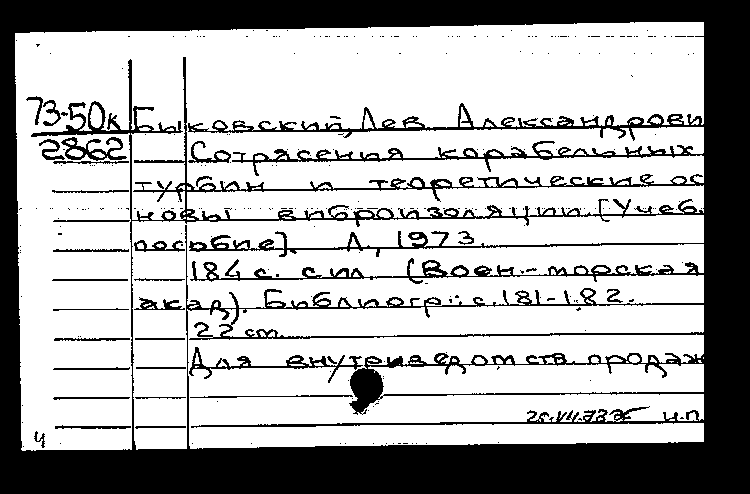 73-50к
2862
Быковский, Лев Александрови
Сотрясения корабельных
турбин и теоретические ос
новы виброизоляции. [Учеб.
пособие]. Л., 1973.
184 с. с ил. (Воен.-морская
акад). Библиогр.: с. 181-182.
22 cm.
Для внутриведомств. продаж
н.п.
ч